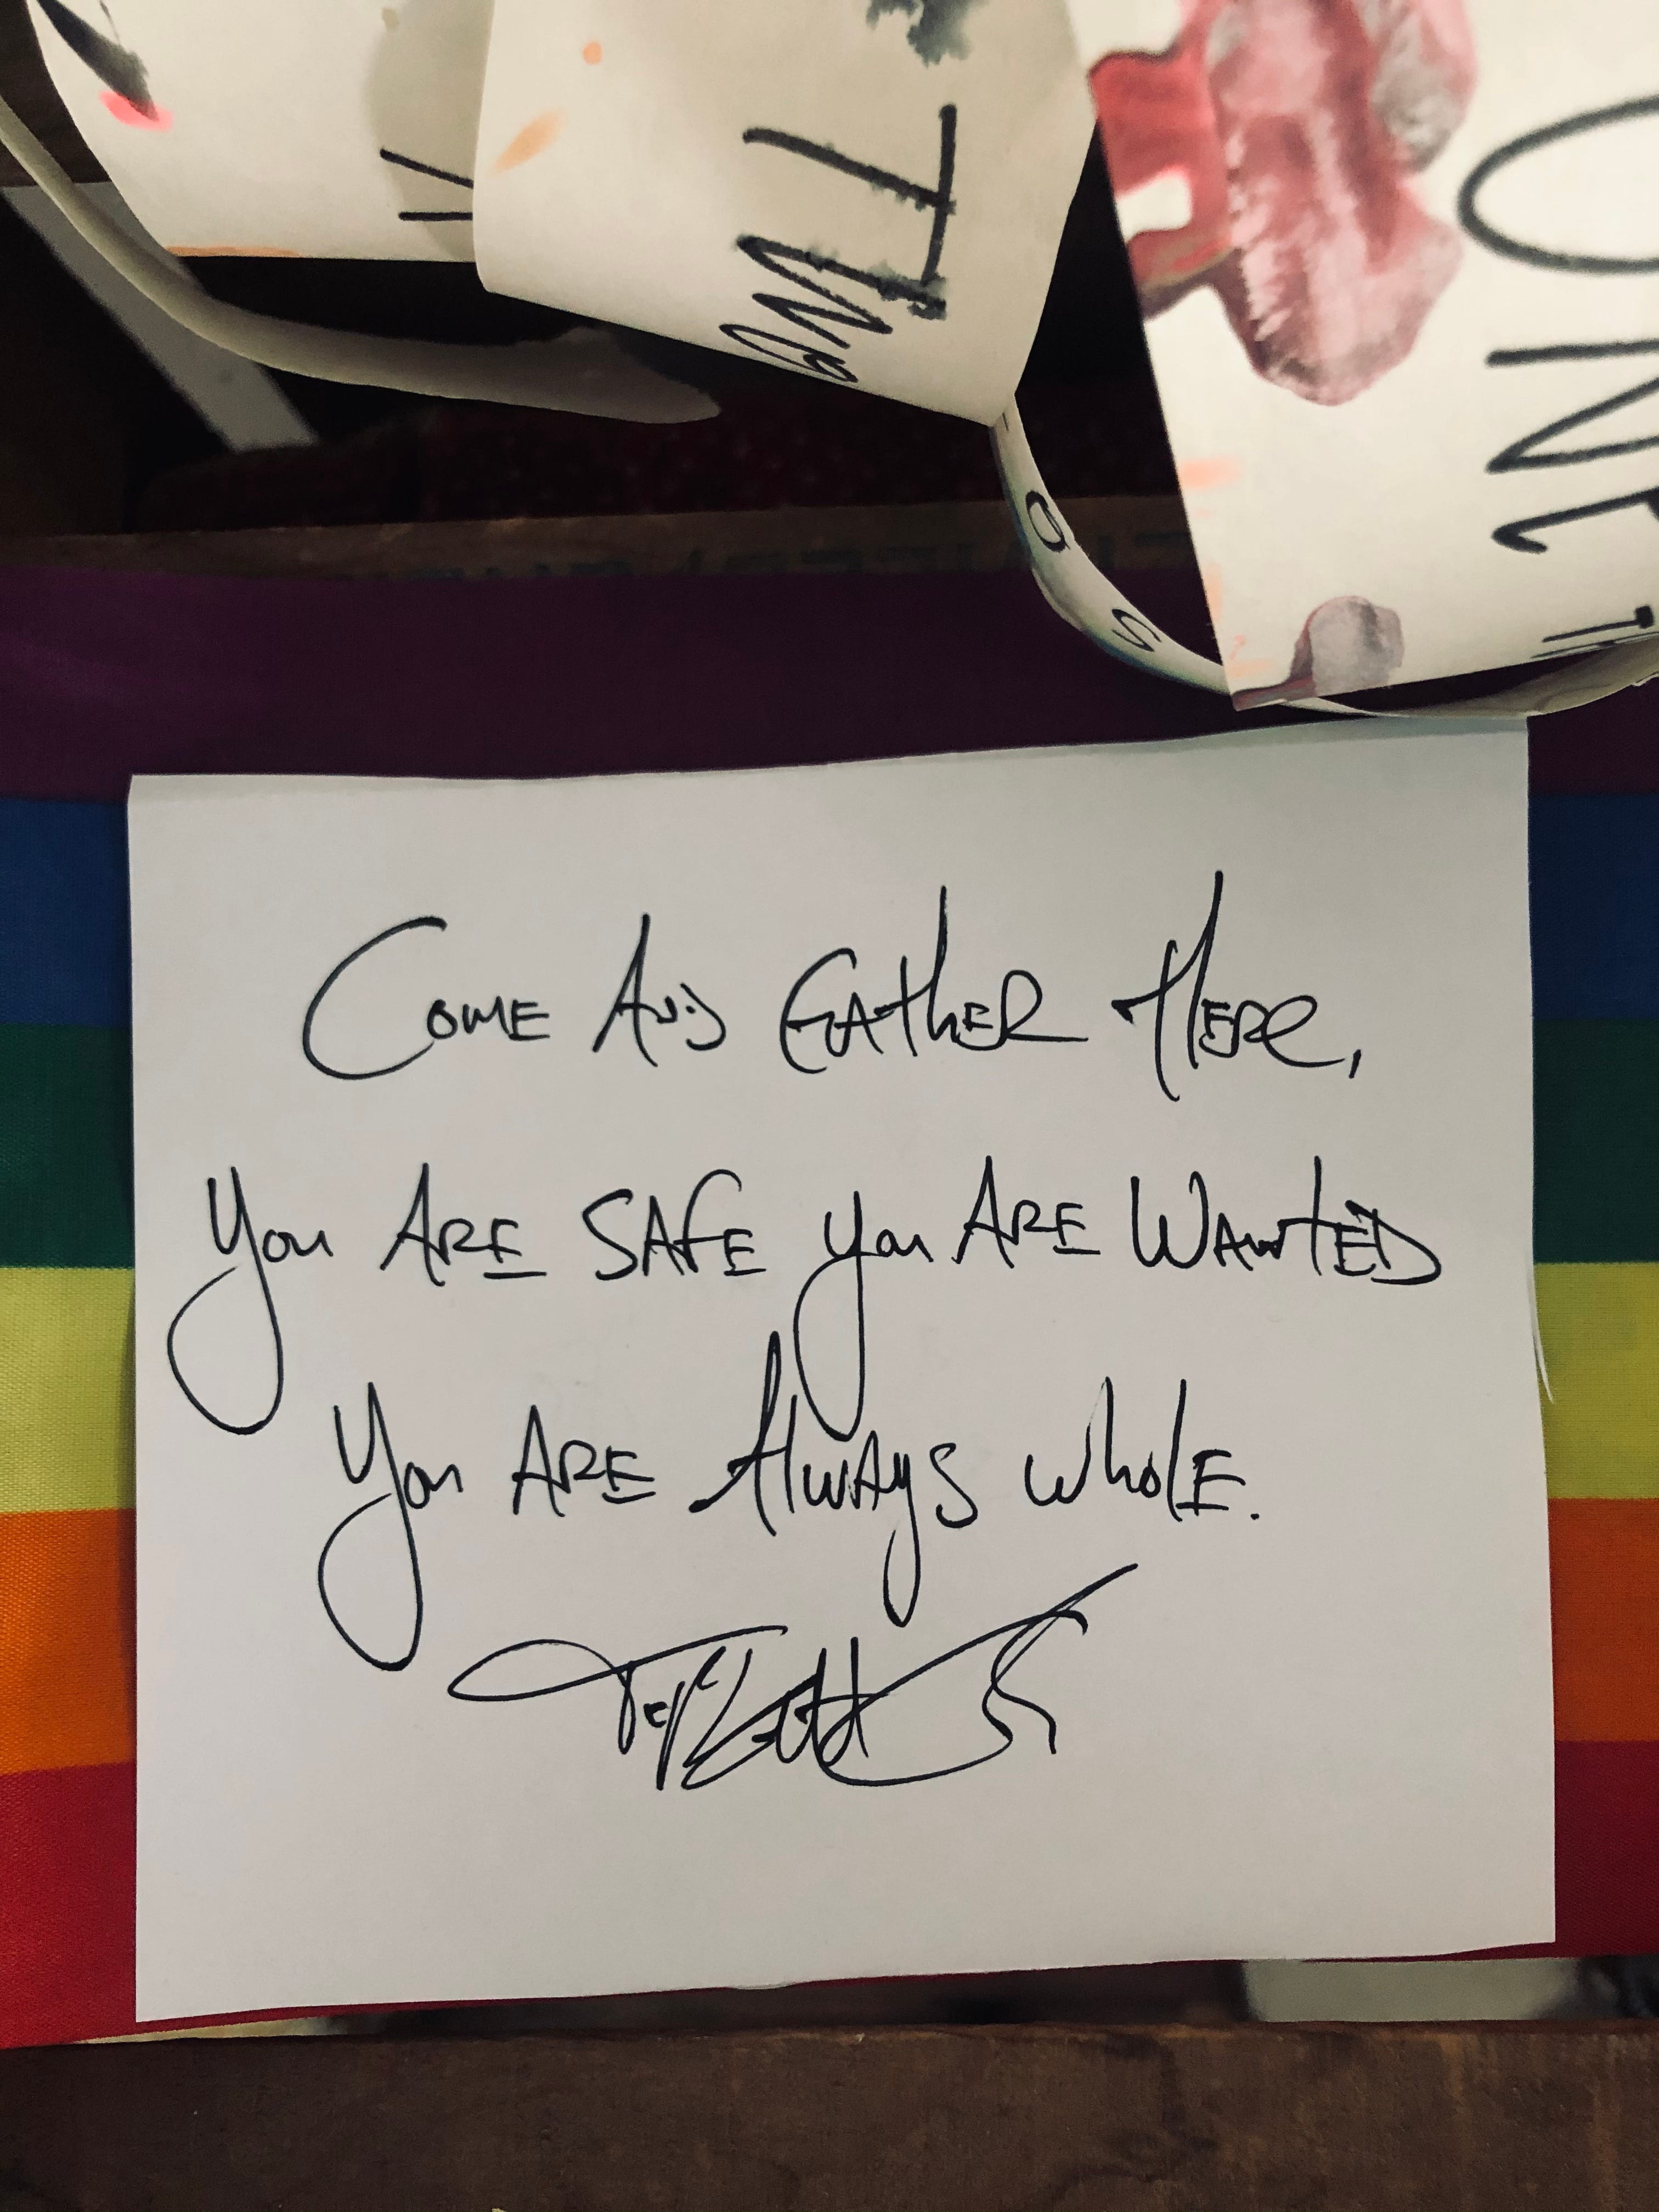 TWO
ONE
O S
Come And Gather Here,
You Are Safe You Are Wanted
You Are Always Whole.